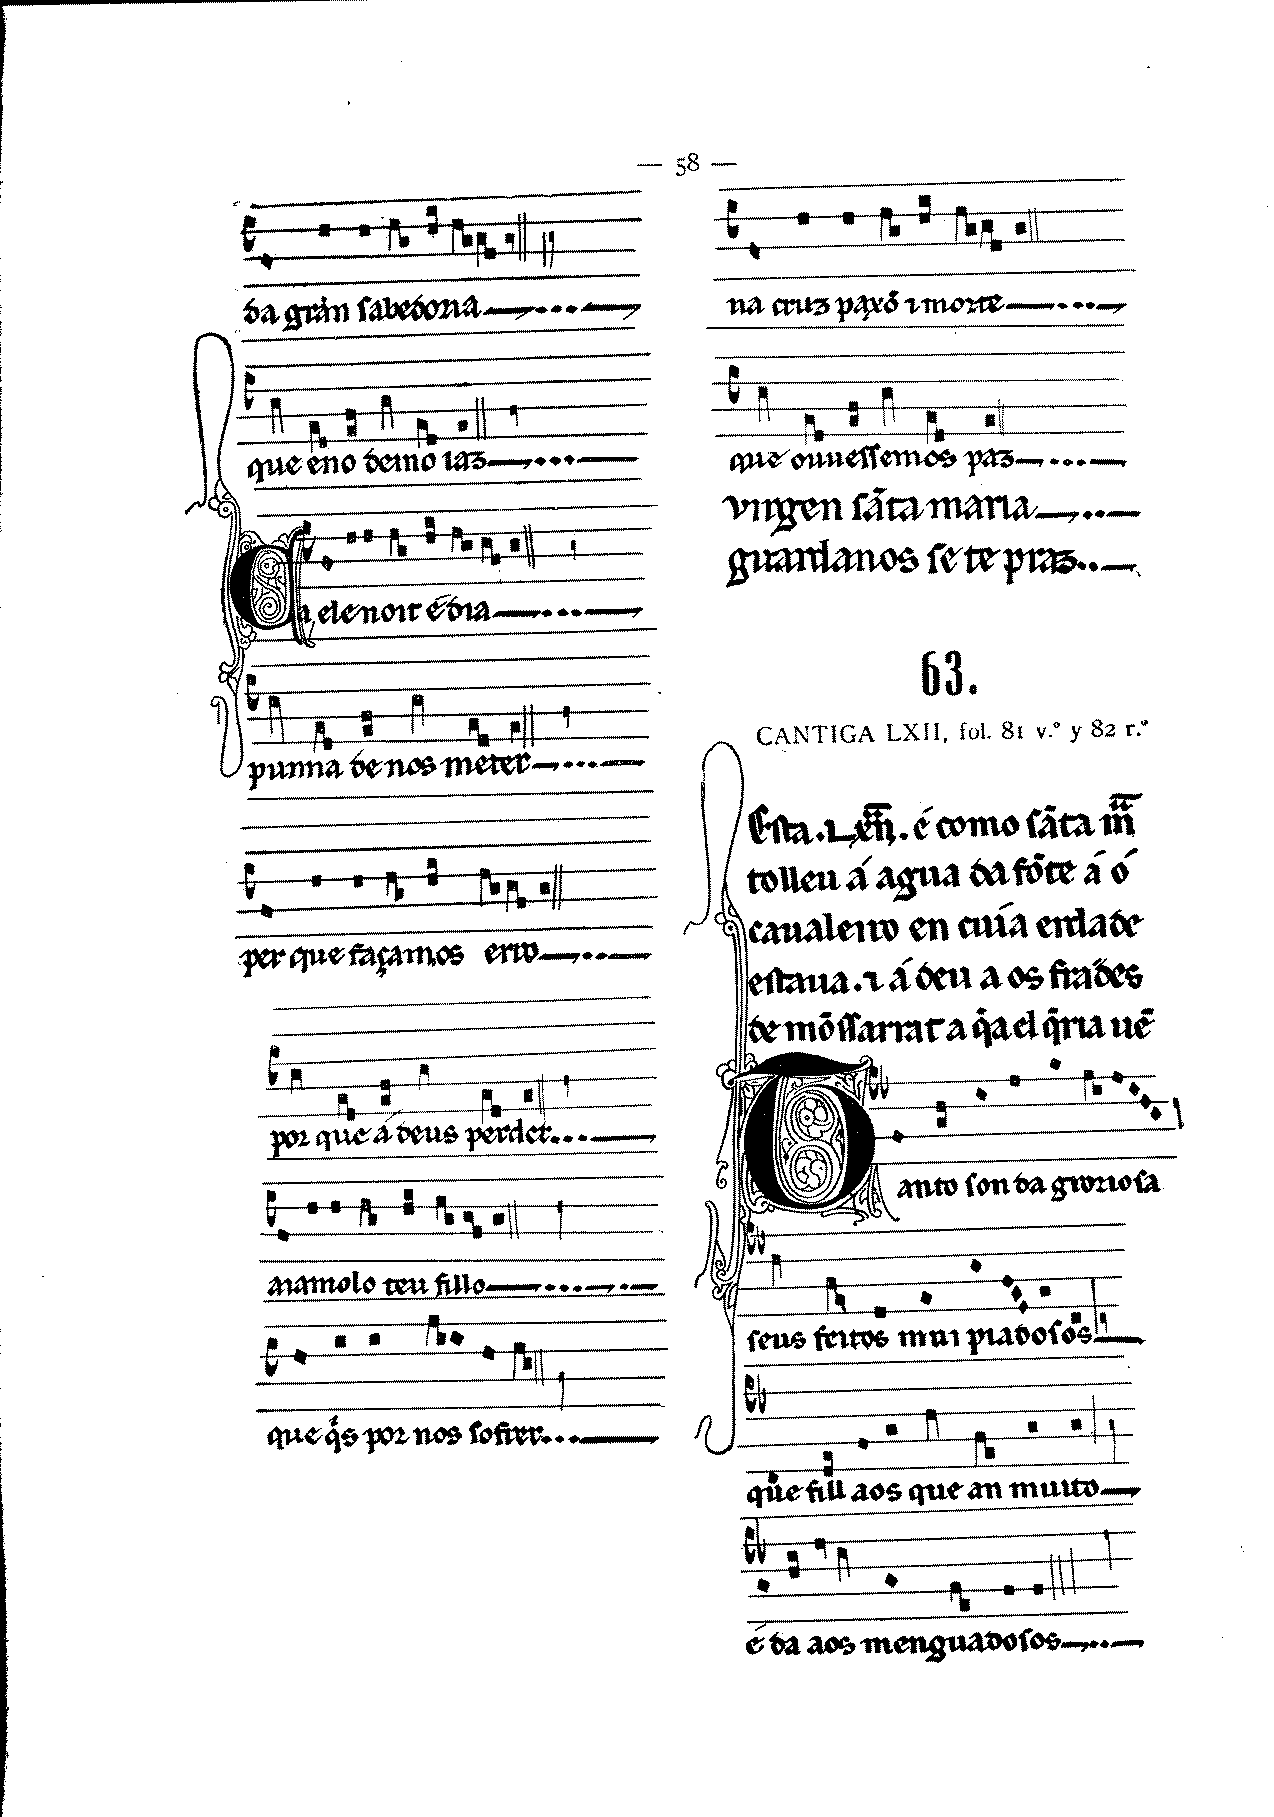 — 58 —
da gran sabedoria
que eno demo iaz
Ca ele noit é dia
punna de nos meter
per que façamos erro
por que á deus perder
aiamolo teu fillo
que q̇s por nos sofrer
na cruz paxõ ⁊ morte
que ouuessemos paz
virgen sãta maria
guardanos se te praz
63.
CANTIGA LXII, fol. 81 v.º y 82 r.º
Esta . é como sãta m̃
tolleu á agua da fõte á ó
caualeiro en cuia erdade
estaua . ⁊ á deu a os frades
de mõssarrat a q̃a el q̃ria uẽ
Tanto son da groriosa
seus feitos mui piadosos
que fill aos que an muito
é da aos menguadosos